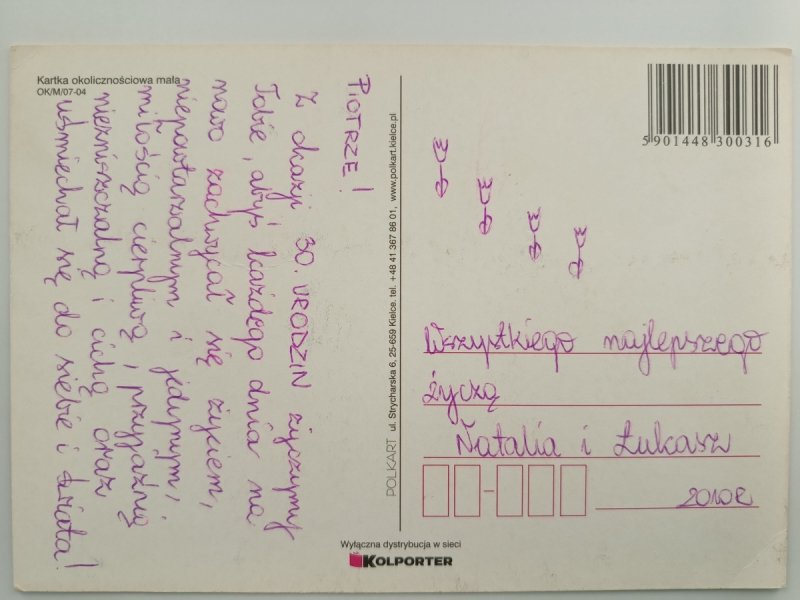 Kartka okolicznościowa mała
OK/M/07-04
PIOTRZE!
Z okazji 30. URODZIN życzymy
Tobie, abyś każdego dnia na
nowo zachwycał się życiem,
niepowtarzalnym i jedynym,
miłością cierpliwą, przyjaźnią
niezniszczalną i cichą oraz
uśmiechał się do siebie i świata!
POLKART ul. Strycharska 6, 25-659 Kielce. tel. +48 41 367 86 01, www.polkart.kielce.pl
5 901448 300316
Wszystkiego najlepszego
życzą
Natalia i Łukasz
2010R
Wyłączna dystrybucja w sieci
KOLPORTER